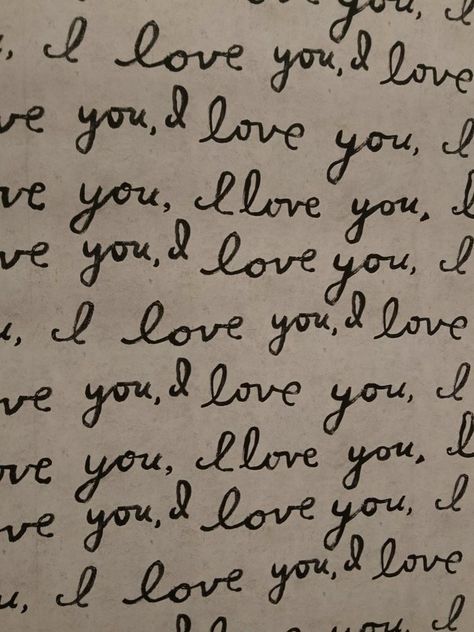 you, I
, I love you, I love
ve you, I love you, I
ve you, I love you, I
ve you, I love you, I
u, I love you, I love
ve you, I love you, I
ove you, I love you, I
ve you, I love you, I
u, I love you, I love
I love you, I